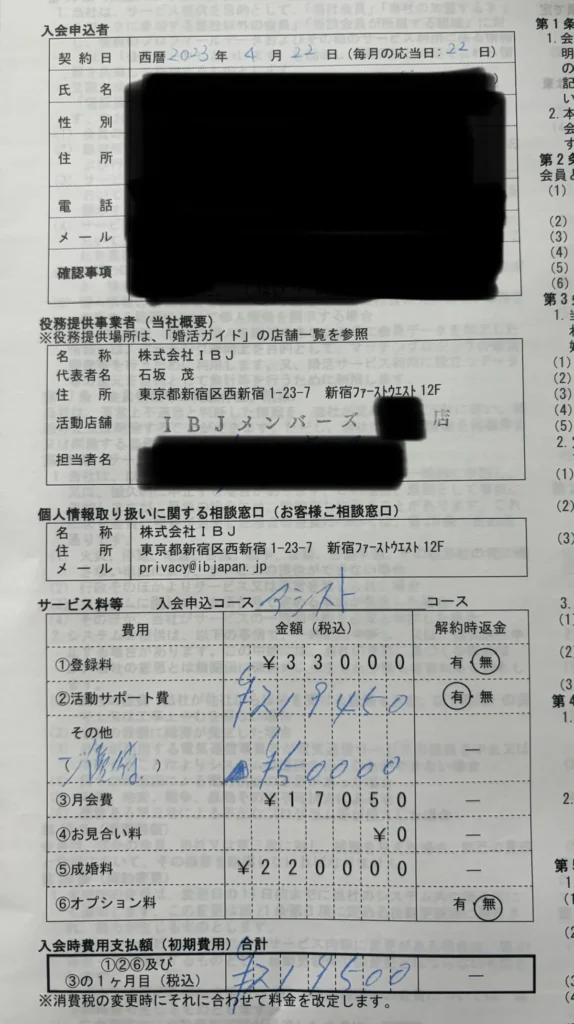 入会申込者
契約日 西暦2023年 4月 22日（毎月の応当日：22日）
氏名
性別
住所
電話
メール
確認事項
役務提供事業者（当社概要）
※役務提供場所は、「婚活ガイド」の店舗一覧を参照
名称 株式会社ＩＢＪ
代表者名 石坂 茂
住所 東京都新宿区西新宿1-23-7 新宿ﾌｧｰｽﾄｳｴｽﾄ 12F
活動店舗 ＩＢＪメンバーズ 店
担当者名
個人情報取り扱いに関する相談窓口（お客様ご相談窓口）
名称 株式会社ＩＢＪ
住所 東京都新宿区西新宿1-23-7 新宿ﾌｧｰｽﾄｳｴｽﾄ 12F
メール privacy@ibjapan.jp
サービス料等 入会申込コース アシスト コース
費用 金額（税込） 解約時返金
①登録料 ￥33000 有・無
②活動サポート費 ￥219450 有・無
その他
） ￥50000 ―
③月会費 ￥17050 ―
④お見合い料 ￥0 ―
⑤成婚料 ￥220000 ―
⑥オプション料 有・無
入会時費用支払額（初期費用）合計
①②⑥及び
③の１ヶ月目（税込） ￥219500 ―
※消費税の変更時にそれに合わせて料金を改定します。